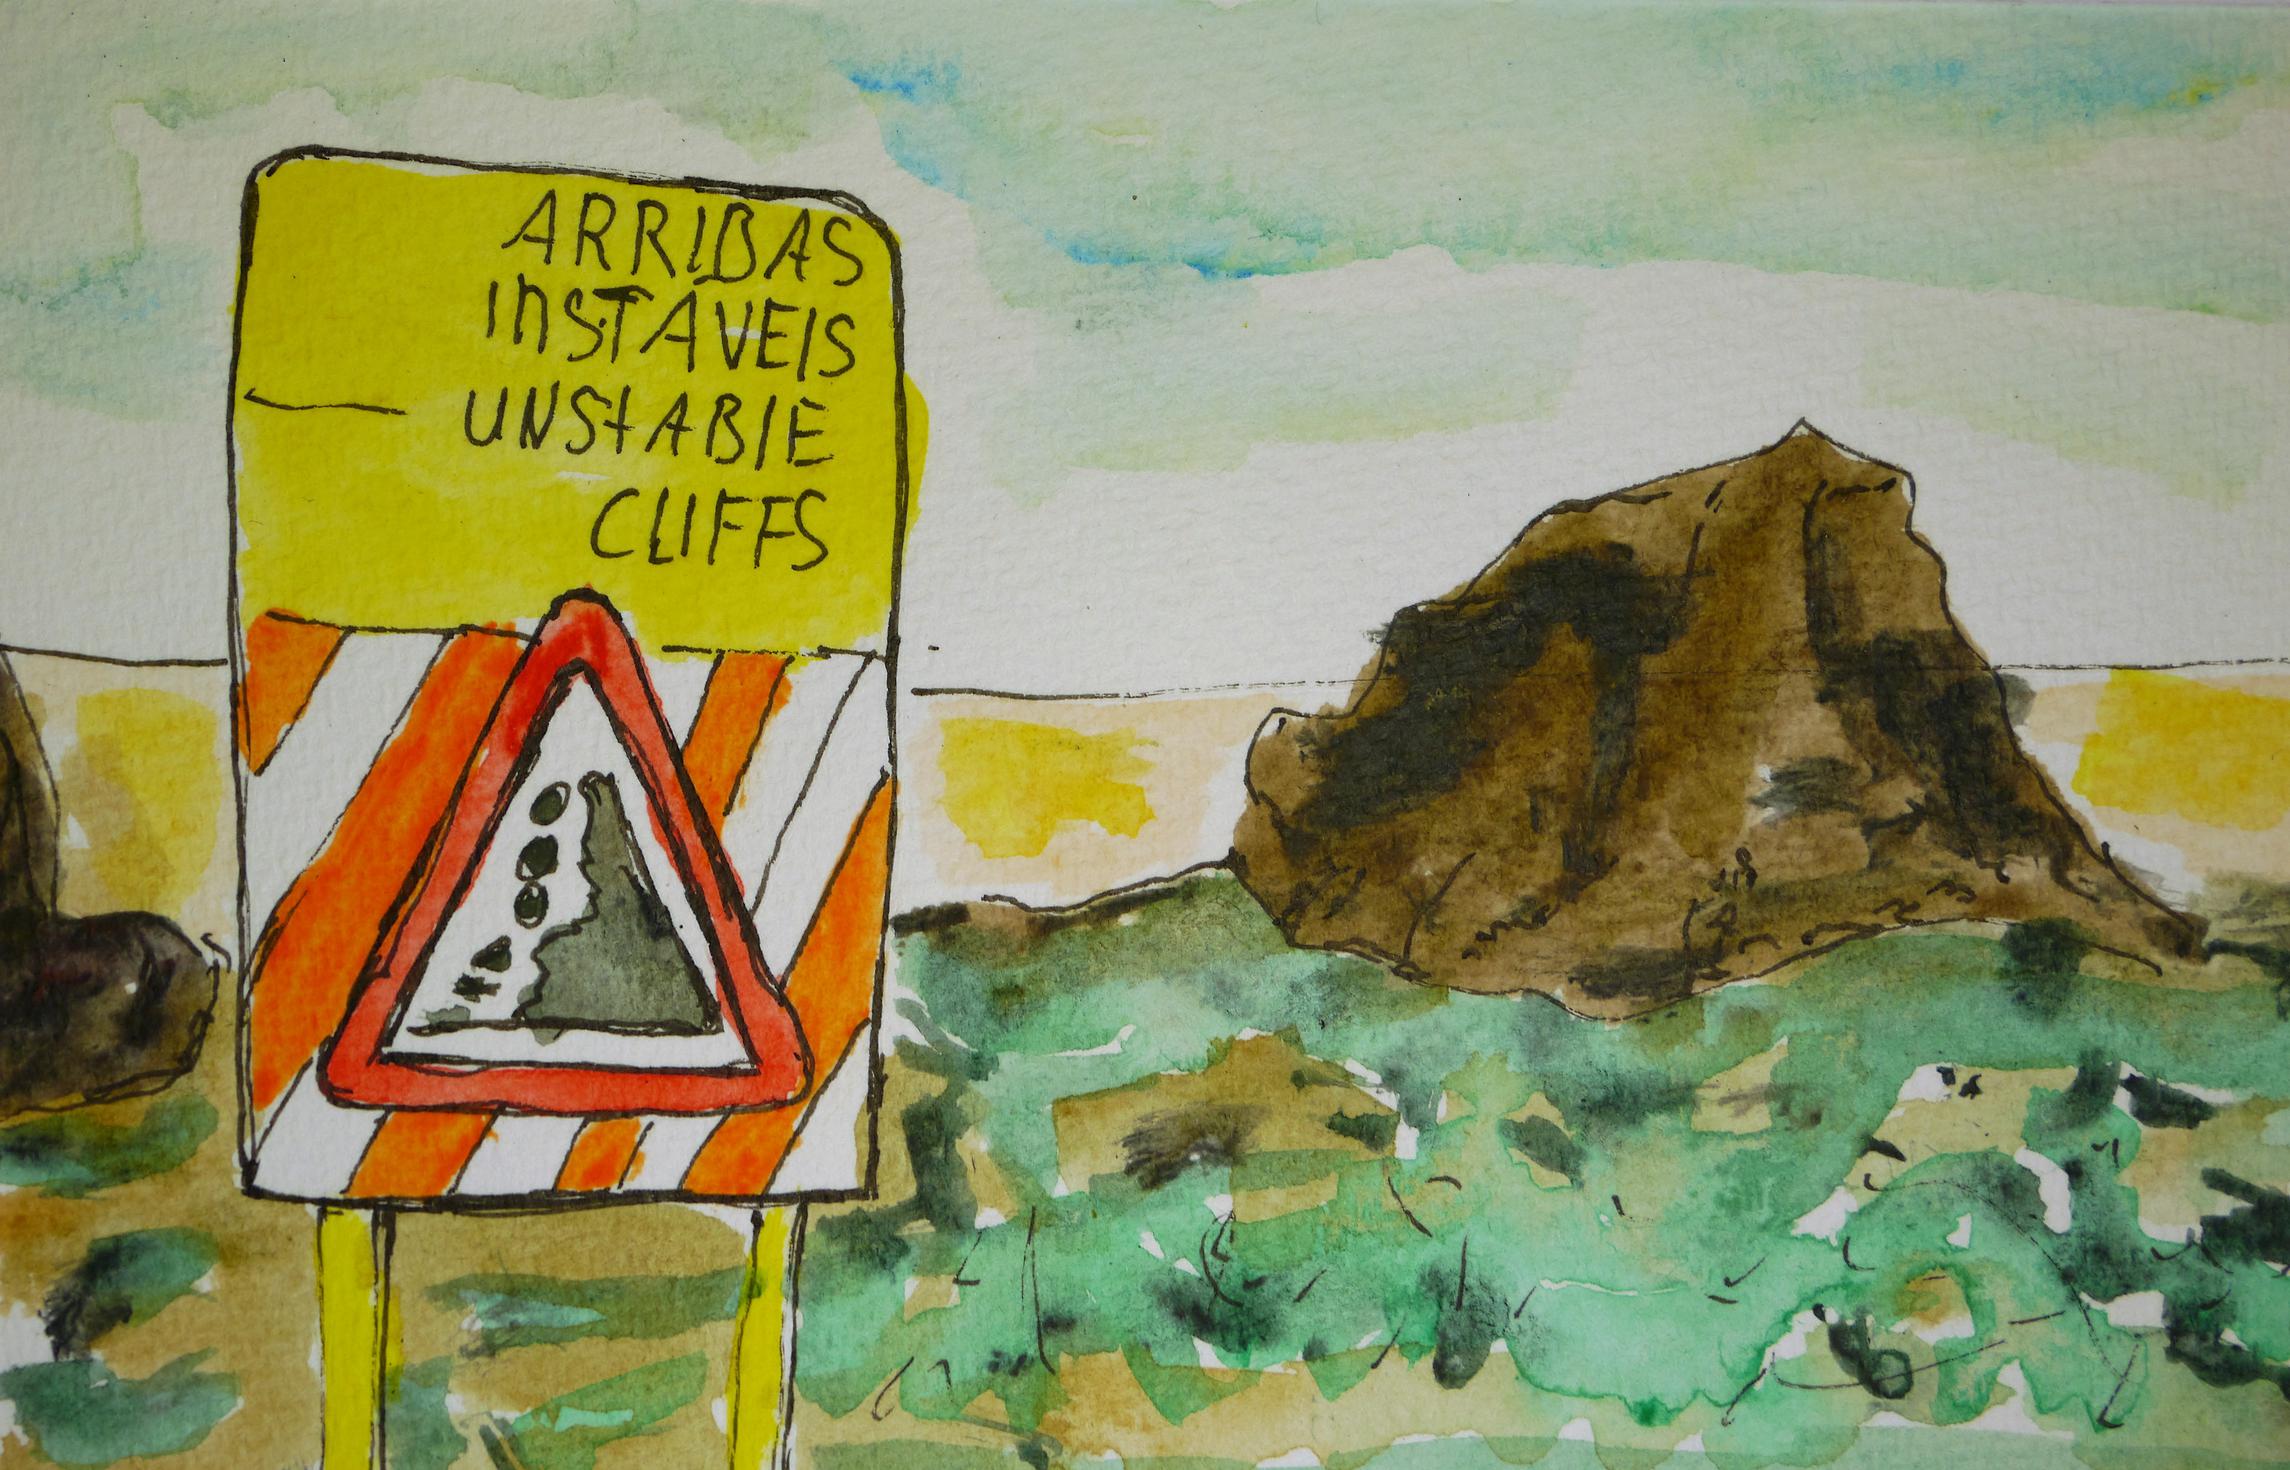 ARRIBAS
INSTÁVEIS
UNSTABLE
CLIFFS